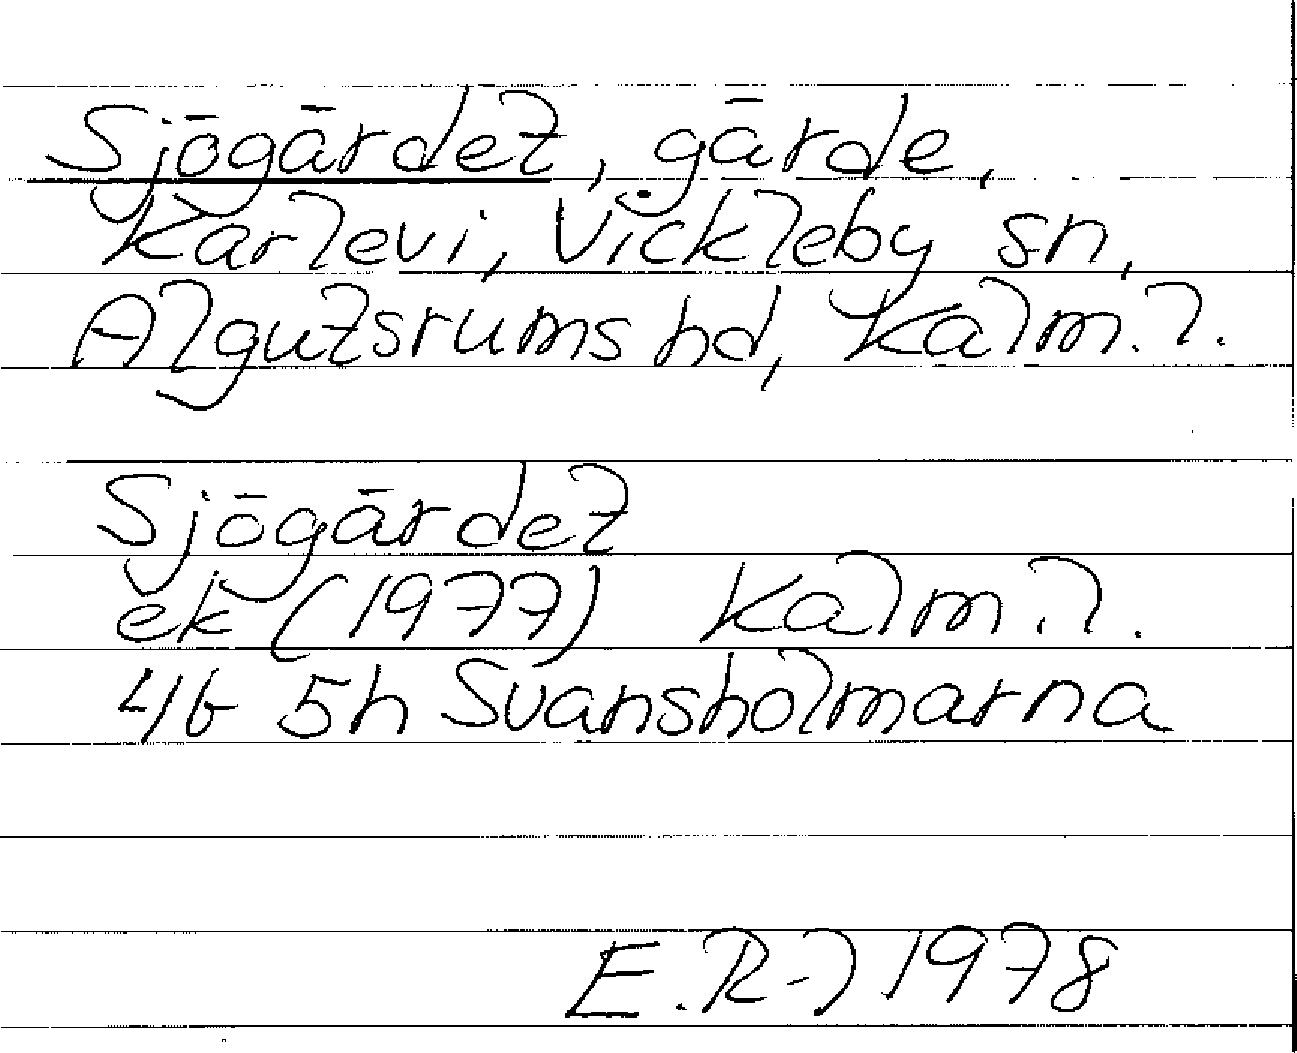 Sjögärdet, gärde,
Karlevi, Vickleby sn,
Algutsrums hd, Kalm. l.
Sjögärdet
ek (1977) Kalm. l.
4G 5h Svansholmarna
E. R-l 1978